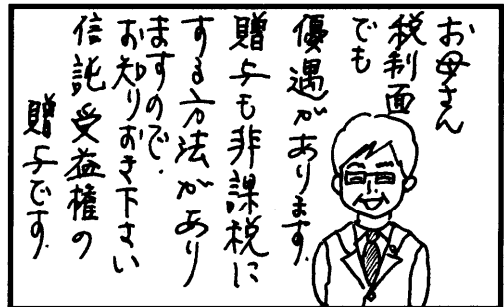 お母さん
税制面
でも
優遇があります.
贈与も非課税に
する方法があり
ますので.
お知りおき下さい
信託受益権の
贈与です.